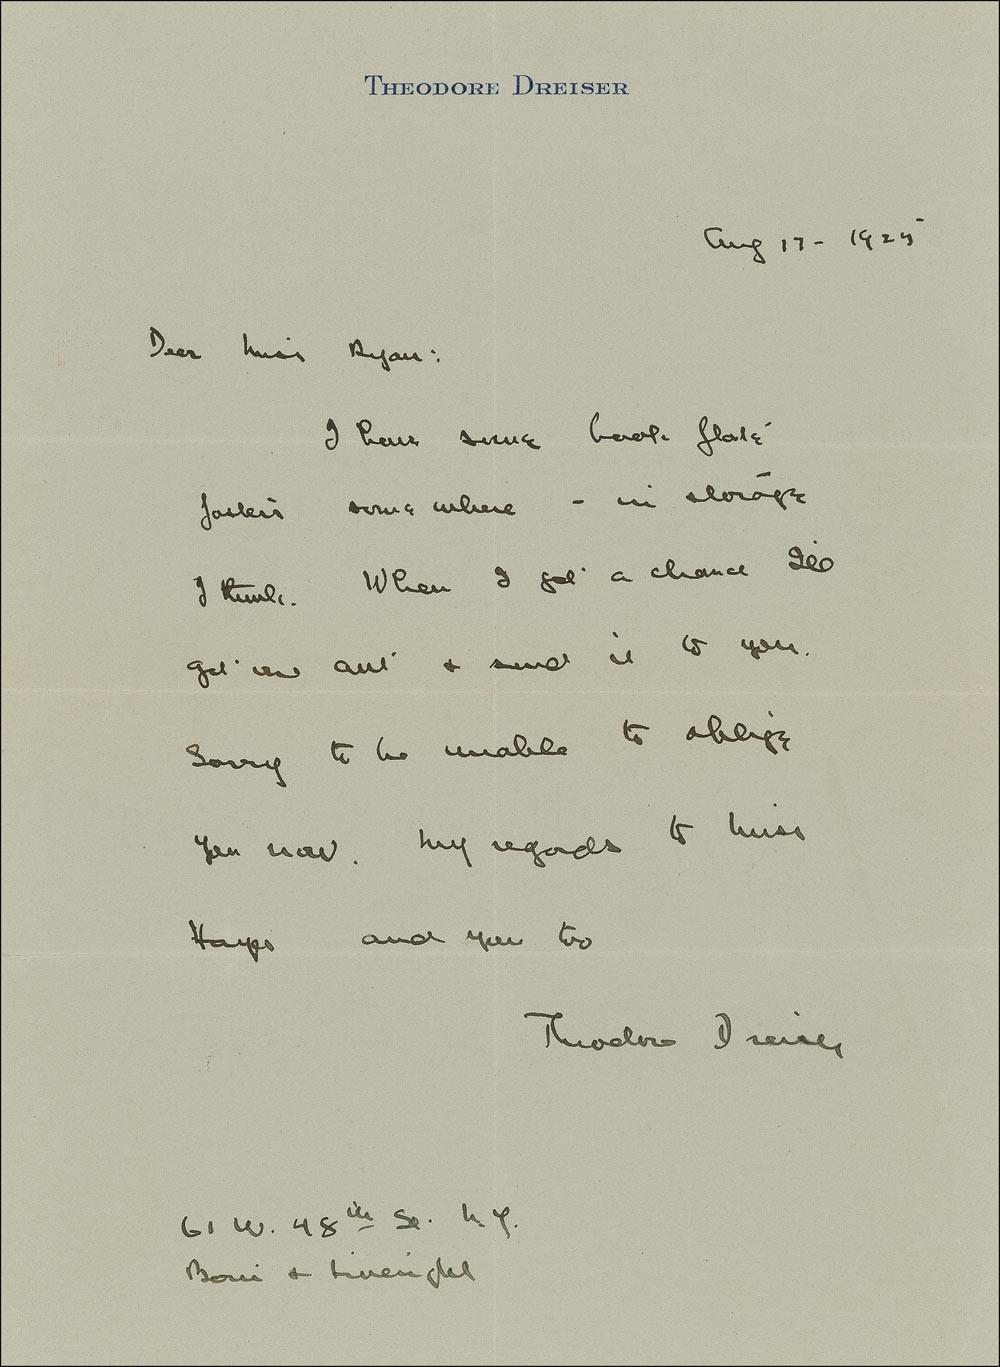 THEODORE DREISER
Aug 17 - 1925
Dear Miss Ryan:
I have some book plate
somewhere - in storage
I think. When I get a chance I'll
get one out + send it to you.
Sorry to be unable to oblige
you now. My regards to Miss
Hayes and you too
Theodore Dreiser
61 W. 48th St. N.Y.
Boni + Liveright